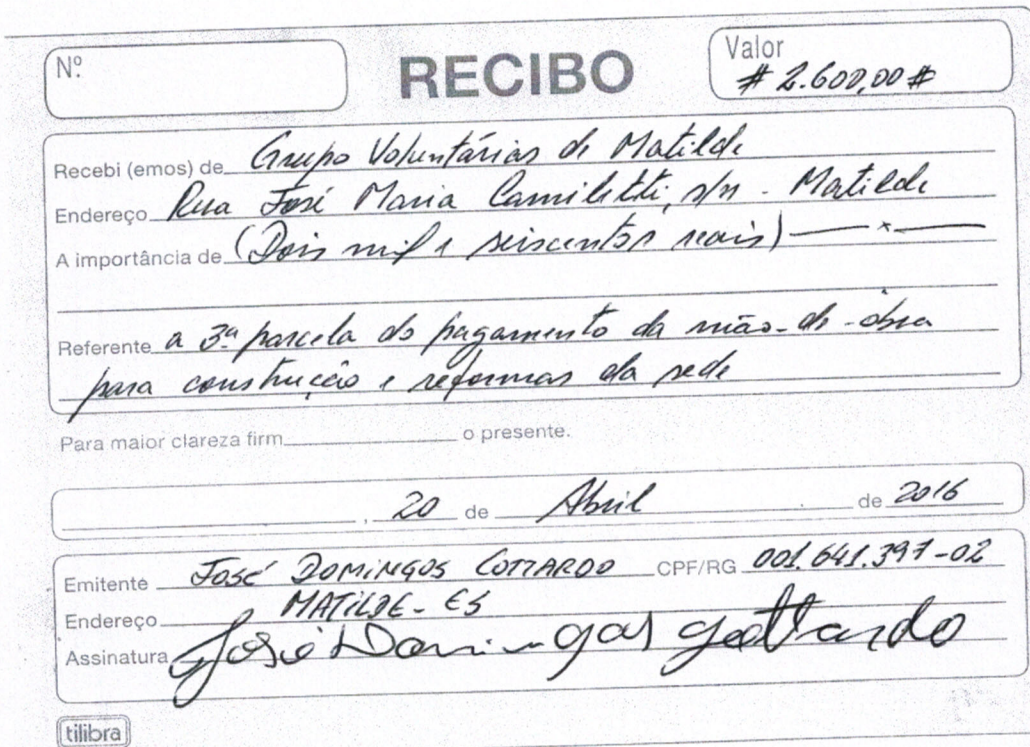 Nº
RECIBO
Valor
# 2.600,00 #
Recebi (emos) de Grupo Voluntárias de Matilde
Endereço Rua José Maria Camiletti, s/n - Matilde
A importância de (Dois mil e seiscentos reais) — x —
Referente a 3ª parcela do pagamento da mão-de-obra
para construção e reformas da sede
Para maior clareza firm o presente.
, 20 de Abril de 2016
Emitente JOSÉ DOMINGOS GOTTARDO CPF/RG 001.641.397-02
Endereço MATILDE - ES
Assinatura José Domingos Gottardo
tilibra